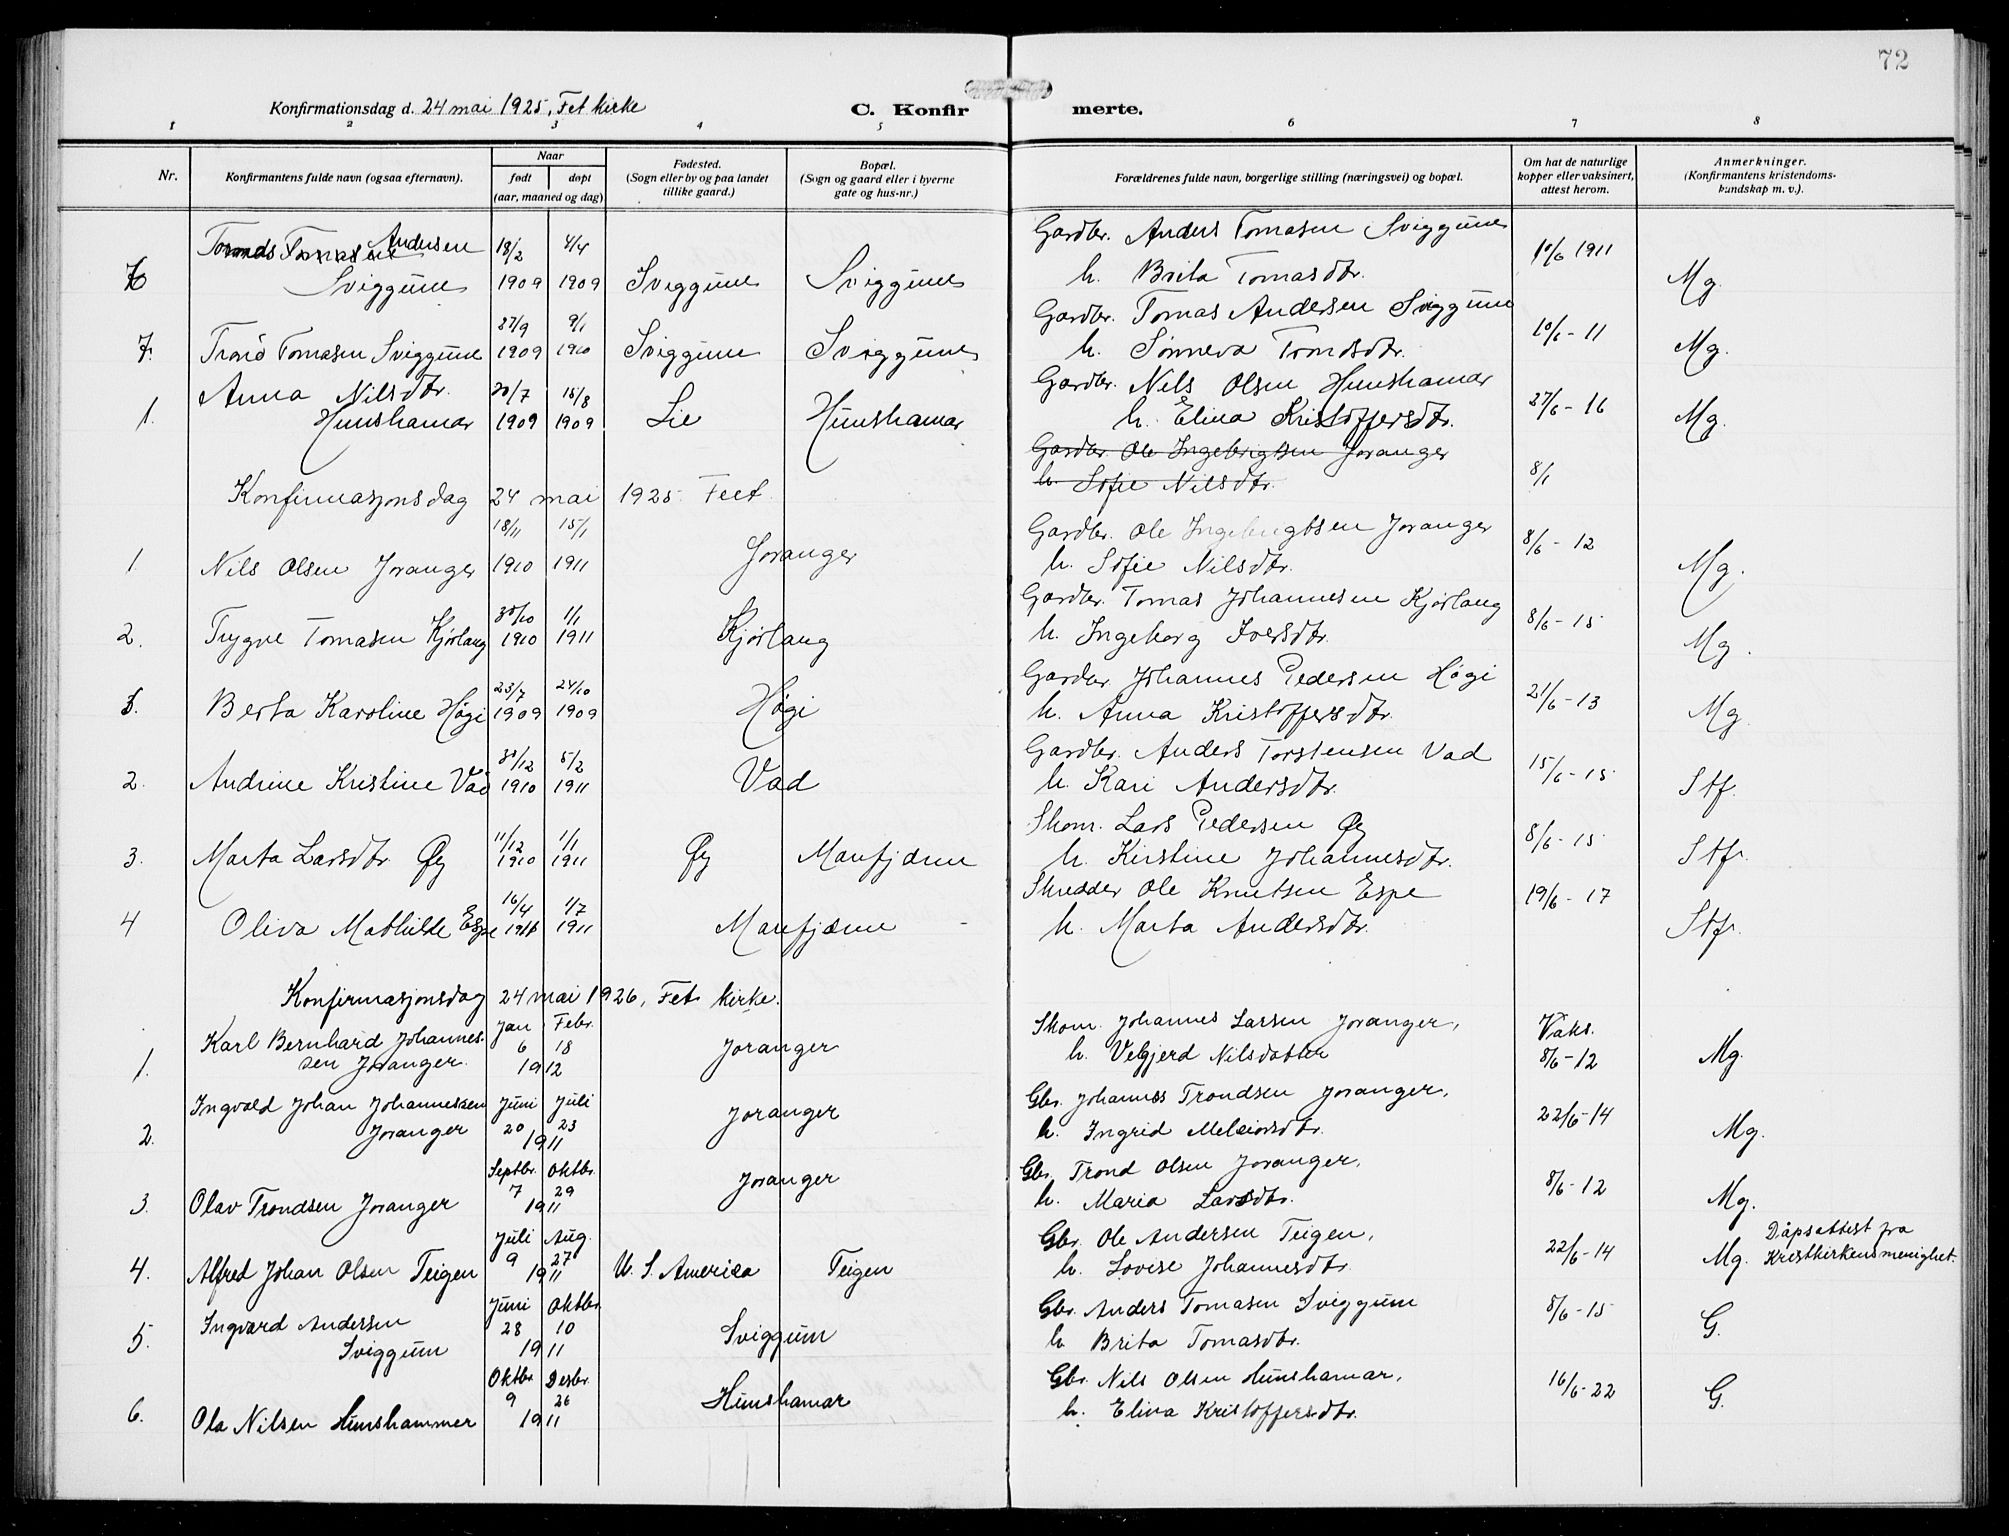 72
Konfirmationsdag d. 24 mai 1925, Fet kirke
C. Konfir merte.
1 2 3 4 5 6 7 8
Nr.
Konfirmantens fulde navn (ogsaa efternavn).
Naar
født døpt
(aar, maaned og dag)
Fødested.
(Sogn eller by og paa landet
tillike gaard.)
Bopæl.
(Sogn og gaard eller i byerne
gate og hus-nr.)
Forældrenes fulde navn, borgerlige stilling (næringsvei) og bopæl.
Om hat de naturlige
kopper eller vaksinert,
attest herom.
Anmerkninger.
(Konfirmantens kristendoms-
kundskap m. v.).
Andersen 18/2 4/4 Gardbr. Anders Tomasen Sviggum 10/6 1911
Sviggum 1909 1909 Sviggum Sviggum h. Brita Tomasdtr. Mg.
27/9 9/1 Gardbr. Tomas Andersen Sviggum
7. Trond Tomasen Sviggum 1909 1910 Sviggum Sviggum h. Sønneva Trondsdtr. 10/6 - 11 Mg.
Anna Nilsdtr. 20/7 15/8 Gardbr. Nils Olsen Hunshamar
1. Hunshamar 1909 1909 Lie Hunshamar h. Elina Kristoffersdtr. 27/6 - 16 Mg.
Gardbr. Ole Ingebrigtsen Joranger
h. Sofie Nilsdtr. 8/1
Konfirmasjonsdag 24 mai 1925 Feet
18/11 15/1 Gardbr. Ole Ingebrigtsen Joranger
1 Nils Olsen Joranger 1910 1911 Joranger h. Sofie Nilsdtr. 8/6 - 12 Mg.
30/10 1/1 Gardbr. Tomas Johannesen Kjørlaug
2. Trygve Tomasen Kjørlaug 1910 1911 Kjørlaug h. Ingeborg Iversdtr. 8/6 - 15 Mg.
23/7 24/10 Gardbr. Johannes Pedersen Høgi
1. Berta Karoline Høgi 1909 1909 Høgi h. Anna Kristoffersdtr. 21/6 - 13 Mg.
30/12 5/2 Gardbr. Anders Torstensen Vad
2. Andrine Kristine Vad 1910 1911 Vad h. Kari Andersdtr. 15/6 - 15 Stf.
11/12 1/1 Skom. Lars Pedersen Øy
3. Marta Larsdtr. Øy 1910 1911 Øy Marifjøren h. Kirstine Johannesdtr. 8/6 - 15 Stf.
16/4 1/7 Skredder Ole Knutsen Espe
4 Oliva Mathilde Espe 1911 1911 Marifjøren h. Marta Andersdtr. 19/6 - 17 Stf.
Konfirmasjonsdag 24 mai 1926, Fet kirke.
Karl Bernhard Johannes- Jan Febr. Skom. Johannes Larsen Joranger, Vaks.
1. sen Joranger. 6 18 1912 Joranger h. Velgjerd Nilsdatter 8/6 - 12 Mg.
Ingvald Johan Johannessen Juni Juli Gbr. Johannes Trondsen Joranger,
2. Joranger 20 23 1911 Joranger h. Ingrid Melkiorsdtr. 22/6 - 14 Mg.
Septbr. Oktbr. Gbr. Trond Olsen Joranger,
3. Olav Trondsen Joranger 7 29 1911 Joranger h. Maria Larsdtr. 8/6 - 12 Mg.
Juli Aug. Gbr. Ole Andersen Teigen, Dåpsattest fra
4. Alfred Johan Olsen Teigen 9 27 1911 U. S. America Teigen h. Lovise Johannesdtr 22/6 - 14 Mg. Kristkirkens menighet.
Ingvard Andersen Juni Oktbr. Gbr. Anders Tomasen Sviggum
5. Sviggum 28 10 1911 Sviggum h Brita Tomasdtr. 8/6 - 15 G.
Oktbr. Desbr. Gbr. Nils Olsen Hunshamar,
6. Ola Nilsen Hunshammer 9 26 1911 Hunshamar h. Elina Kristoffersdtr. 16/6 - 22 G.